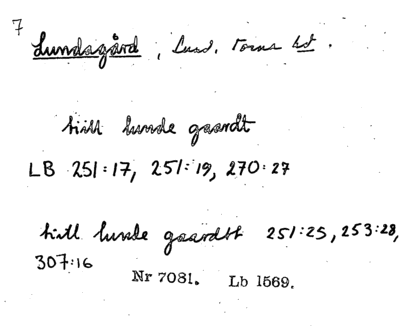 7
Lundagård, Lund, Torna hd.
till lunde gaardt
LB 251:17, 251:19, 270:27
till lunde gaardtt 251:25, 253:28,
307:16
Nr 7081. Lb 1569.